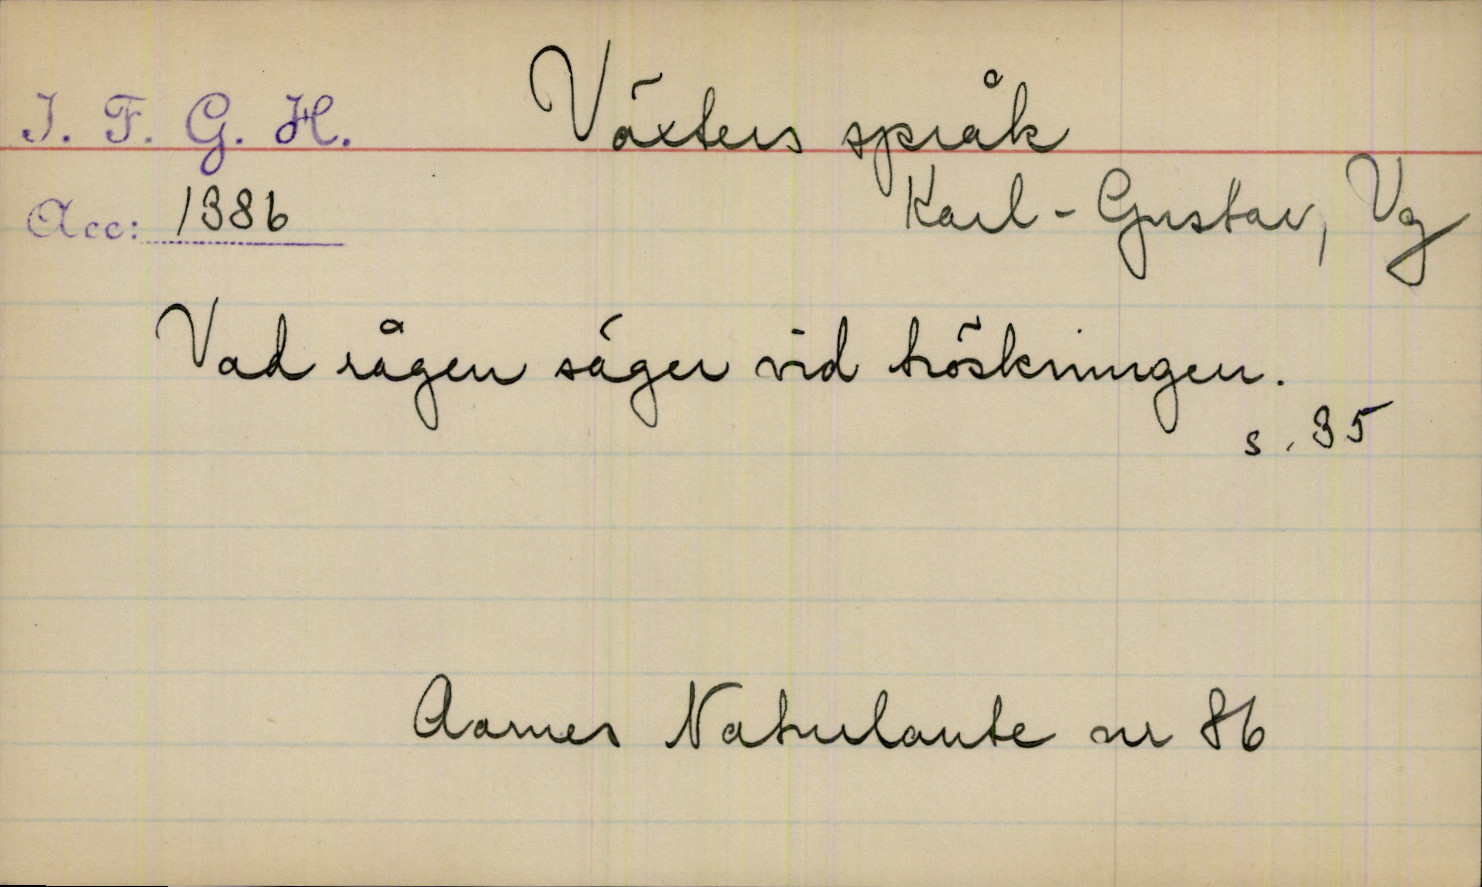 I. F. G. H.
Växters språk
Acc: 1386
Karl-Gustav, Vg
Vad rågen säger vid tröskningen.
s. 35
Aarnes Naturlaute nr 86